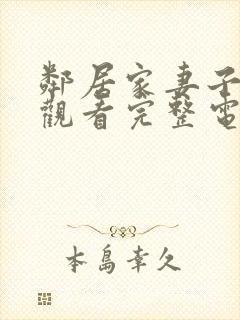 鄰居家妻子
觀看完整電
本島幸久